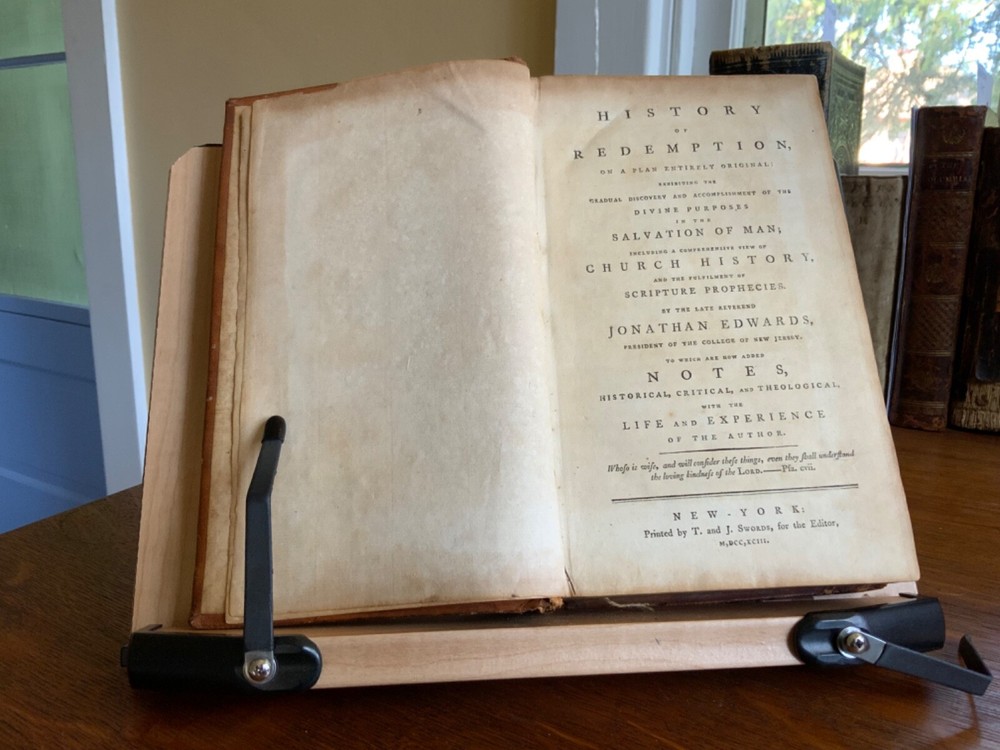 HISTORY
OF
REDEMPTION,
ON A PLAN ENTIRELY ORIGINAL:
EXHIBITING THE
GRADUAL DISCOVERY AND ACCOMPLISHMENT OF THE
DIVINE PURPOSES
IN THE
SALVATION OF MAN;
INCLUDING A COMPREHENSIVE VIEW OF
CHURCH HISTORY,
AND THE FULFILMENT OF
SCRIPTURE PROPHECIES.
BY THE LATE REVEREND
JONATHAN EDWARDS,
PRESIDENT OF THE COLLEGE OF NEW JERSEY.
TO WHICH ARE NOW ADDED
NOTES,
HISTORICAL, CRITICAL, AND THEOLOGICAL,
WITH THE
LIFE AND EXPERIENCE
OF THE AUTHOR.
Whoſo is wiſe, and will conſider theſe things, even they ſhall underſtand
the loving kindneſs of the LORD.——Pſa. cvii.
NEW-YORK:
Printed by T. and J. SWORDS, for the Editor,
M,DCC,XCIII.